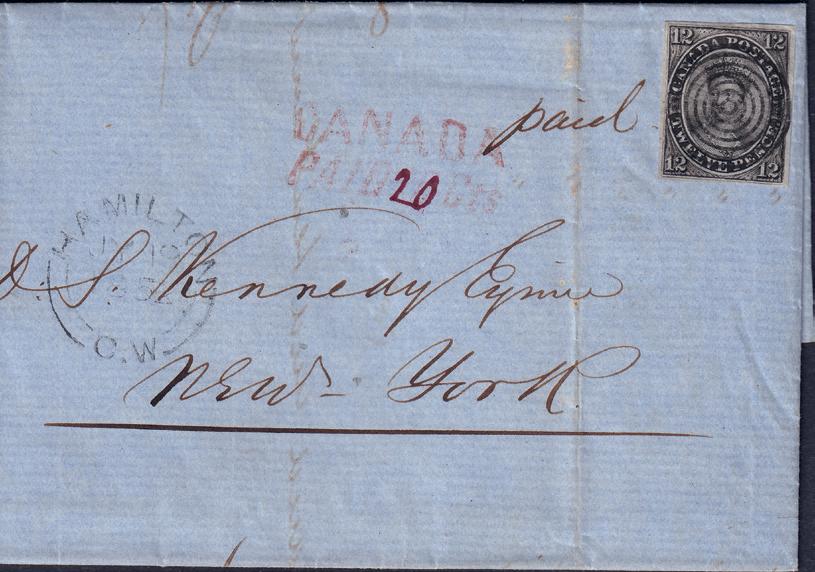 12 12
CANADA POSTAGE
TWELVE PENCE
12 12
paid
CANADA
PAID 20 Cts
HAMILTON
19
1852
C.W.
D. S. Kennedy
New-York